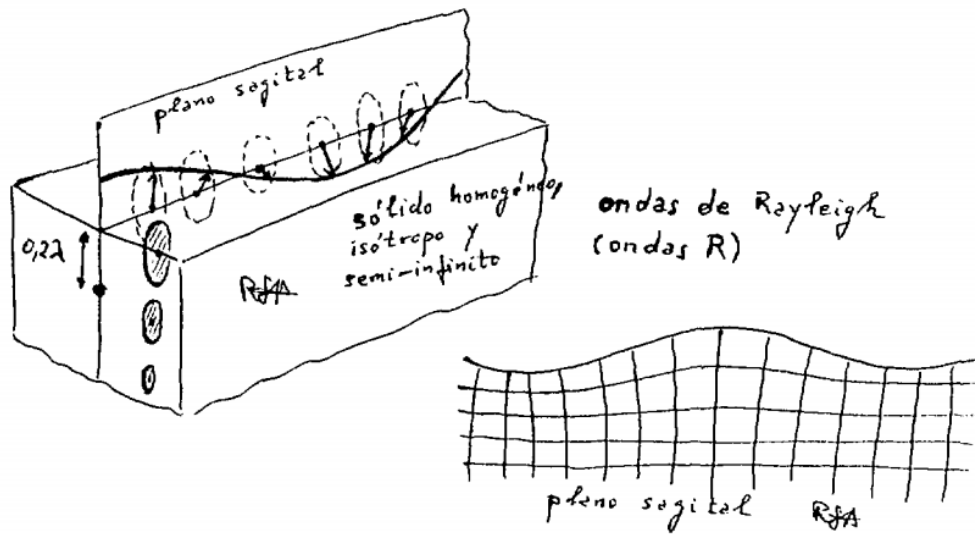 plano sagital
0,2λ
sólido homogéneo,
isótropo y
semi-infinito
RSA
ondas de Rayleigh
(ondas R)
plano sagital
RSA